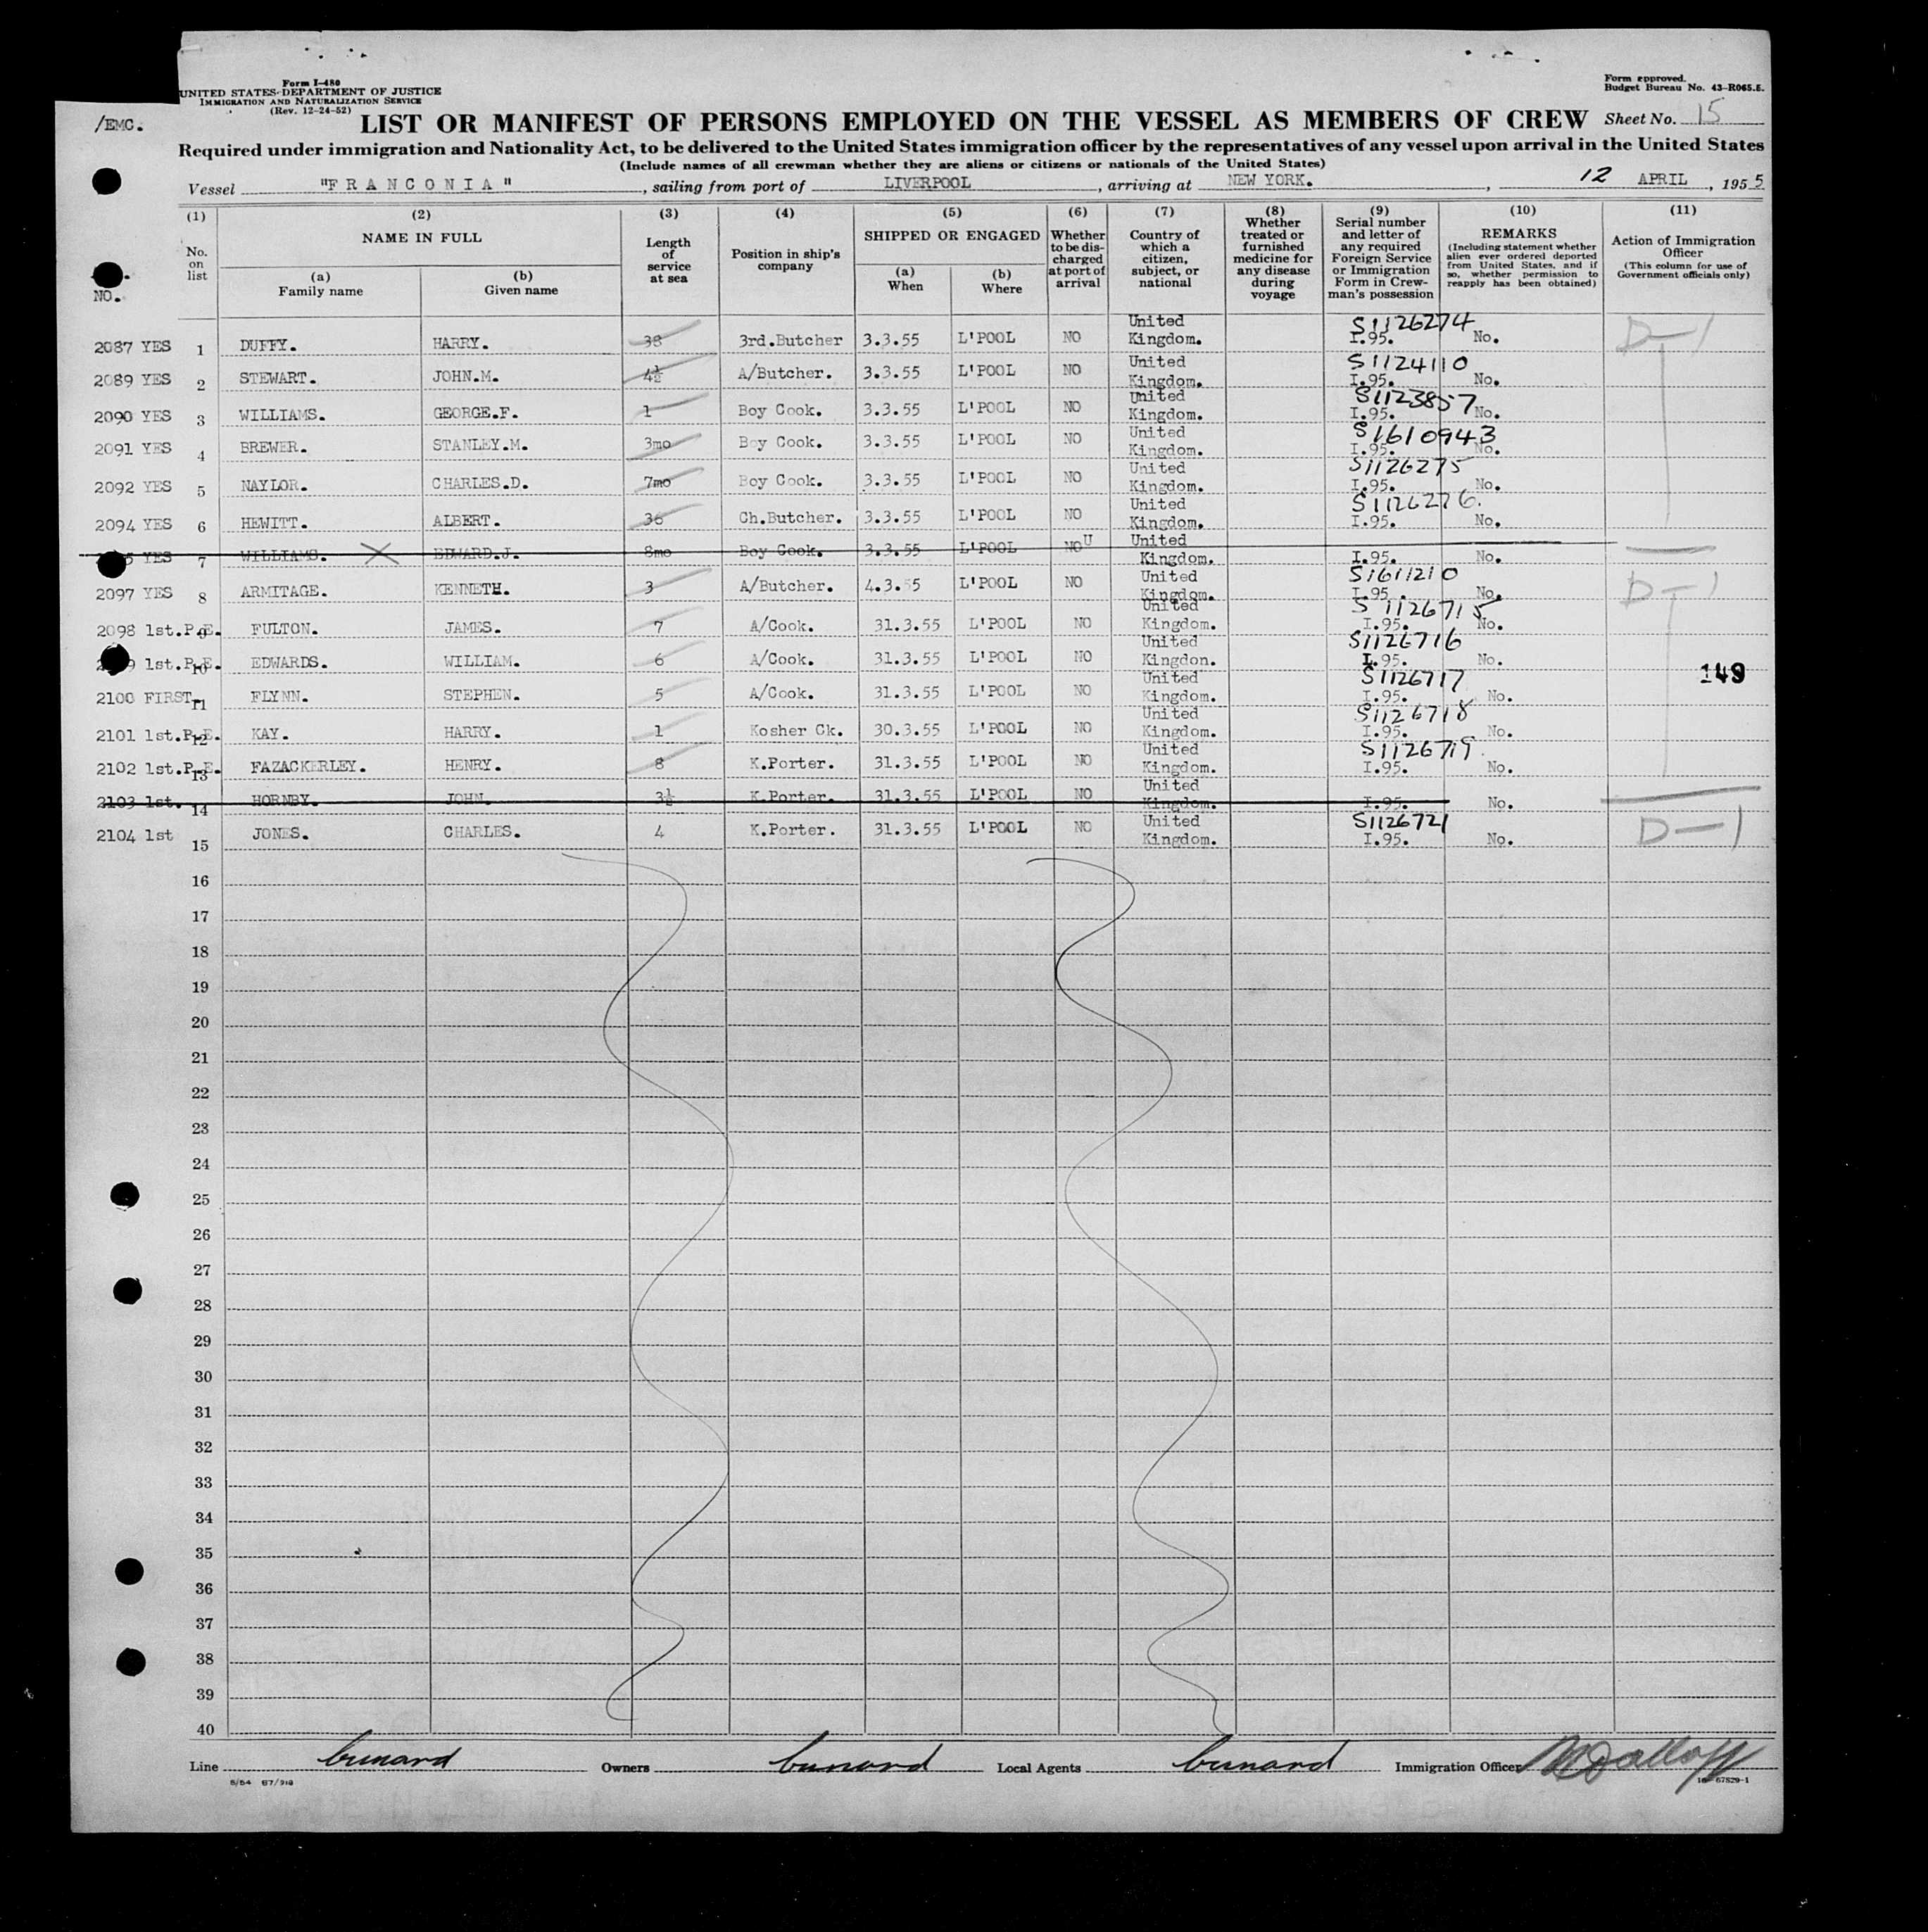 Form I-480
UNITED STATES DEPARTMENT OF JUSTICE
IMMIGRATION AND NATURALIZATION SERVICE
(Rev. 12-24-52)
Form approved.
Budget Bureau No. 43-R065.5.
/EMC.
LIST OR MANIFEST OF PERSONS EMPLOYED ON THE VESSEL AS MEMBERS OF CREW Sheet No. 15
Required under immigration and Nationality Act, to be delivered to the United States immigration officer by the representatives of any vessel upon arrival in the United States
(Include names of all crewman whether they are aliens or citizens or nationals of the United States)
Vessel "FRANCONIA", sailing from port of LIVERPOOL, arriving at NEW YORK., 12 APRIL, 1955
(1) (2) (3) (4) (5) (6) (7) (8) (9) (10) (11)
No. on list
NAME IN FULL
(a) Family name
(b) Given name
Length of service at sea
Position in ship's company
SHIPPED OR ENGAGED
(a) When
(b) Where
Whether to be discharged at port of arrival
Country of which a citizen, subject, or national
Whether treated or furnished medicine for any disease during voyage
Serial number and letter of any required Foreign Service or Immigration Form in Crewman's possession
REMARKS
(Including statement whether alien ever ordered deported from United States, and if so, whether permission to reapply has been obtained)
Action of Immigration Officer
(This column for use of Government officials only)
NO.
2087 YES 1 DUFFY. HARRY. 38 3rd.Butcher 3.3.55 L'POOL NO United Kingdom. S1126274 I.95. No. D-1
2089 YES 2 STEWART. JOHN.M. 4½ A/Butcher. 3.3.55 L'POOL NO United Kingdom. S1124110 I.95. No.
2090 YES 3 WILLIAMS. GEORGE.F. 1 Boy Cook. 3.3.55 L'POOL NO United Kingdom. S1123857 I.95. No.
2091 YES 4 BREWER. STANLEY.M. 3mo Boy Cook. 3.3.55 L'POOL NO United Kingdom. S1610943 I.95. No.
2092 YES 5 NAYLOR. CHARLES.D. 7mo Boy Cook. 3.3.55 L'POOL NO United Kingdom. S1126275 I.95. No.
2094 YES 6 HEWITT. ALBERT. 36 Ch.Butcher. 3.3.55 L'POOL NO United Kingdom. S1126276. I.95. No.
5 YES 7 WILLIAMS. X EDWARD.J. 8mo Boy Cook. 3.3.55 L'POOL NO U United Kingdom. I.95. No.
2097 YES 8 ARMITAGE. KENNETH. 3 A/Butcher. 4.3.55 L'POOL NO United Kingdom. S1611210 I.95. No. D-1
2098 1st.P.E. 9 FULTON. JAMES. 7 A/Cook. 31.3.55 L'POOL NO United Kingdom. S1126715 I.95. No.
9 1st.P.E. 10 EDWARDS. WILLIAM. 6 A/Cook. 31.3.55 L'POOL NO United Kingdon. S1126716 I.95. No.
149
2100 FIRST. 11 FLYNN. STEPHEN. 5 A/Cook. 31.3.55 L'POOL NO United Kingdom. S1126717 I.95. No.
2101 1st.P.E. 12 KAY. HARRY. 1 Kosher Ck. 30.3.55 L'POOL NO United Kingdom. S1126718 I.95. No.
2102 1st.P.E. 13 FAZACKERLEY. HENRY. 8 K.Porter. 31.3.55 L'POOL NO United Kingdom. S1126719. I.95. No.
2103 1st. 14 HORNBY. JOHN. 3½ K.Porter. 31.3.55 L'POOL NO United Kingdom. I.95. No.
2104 1st 15 JONES. CHARLES. 4 K.Porter. 31.3.55 L'POOL NO United Kingdom. S1126721 I.95. No. D-1
16
17
18
19
20
21
22
23
24
25
26
27
28
29
30
31
32
33
34
35
36
37
38
39
40
Line Cunard Owners Cunard Local Agents Cunard Immigration Officer
16-67829-1